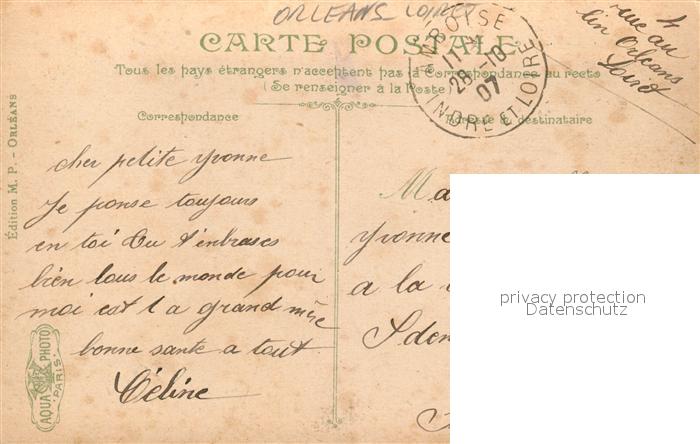 ORLEANS LOIRET
CARTE POSTALE
Tous les pays étrangers n'acceptent pas la Correspondance au recto
(Se renseigner à la Poste)
AMBOISE
28 -10
07
INDRE ET LOIRE
4
rue au
lin Orleans
Loiret
Correspondance
Adresse du destinataire
Édition M. P. - ORLÉANS
cher petite yvonne
Je ponse toujours
en toi Tu t'enbrases
bien tous le monde pour
moi est t a grand mère
bonne sante a tout
Céline
Ma
Yvonne
a la
AQUA PHOTO
PARIS
privacy protection
Datenschutz